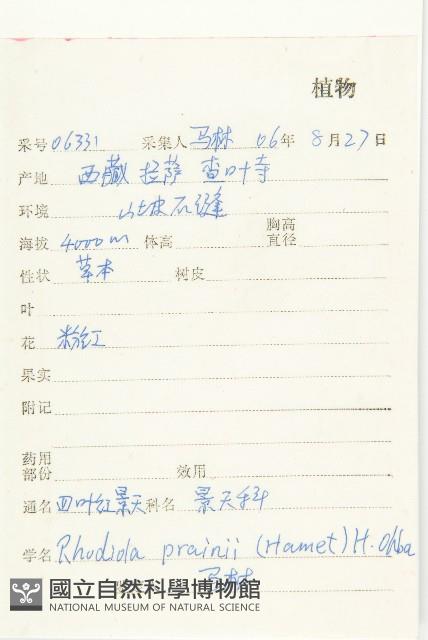 植物
采号 06331 采集人 马林 06年 8月27日
产地 西藏 拉萨 查叶寺
环境 山坡石缝
海拔 4000m 体高 胸高直径
性状 草本 树皮
叶
花 粉红
果实
附记
药用部份 效用
通名 四叶红景天 科名 景天科
学名 Rhodiola prainii (Hamet) H. Ohba
马林
國立自然科學博物館
NATIONAL MUSEUM OF NATURAL SCIENCE